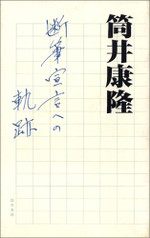 筒井康隆
断筆宣言への
軌跡